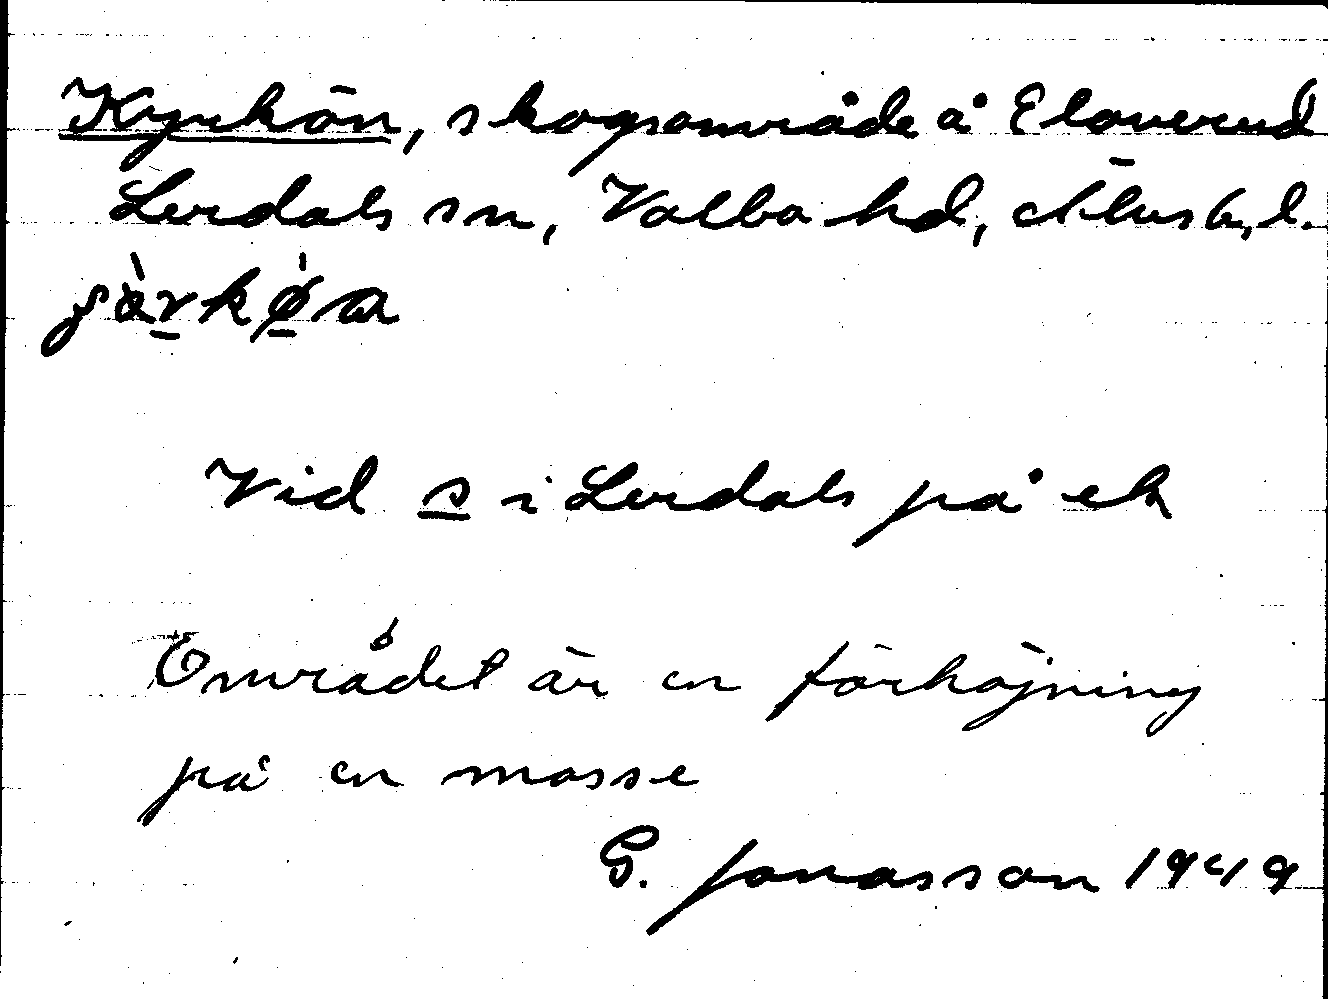 Kyrkön, skogsområde å Elaverud
Lerdals sn, Valbo hd, Älvsb. l.
Vid s i Lerdals på ek
Området är en förhöjning
på en mosse
G. Jonasson 1949